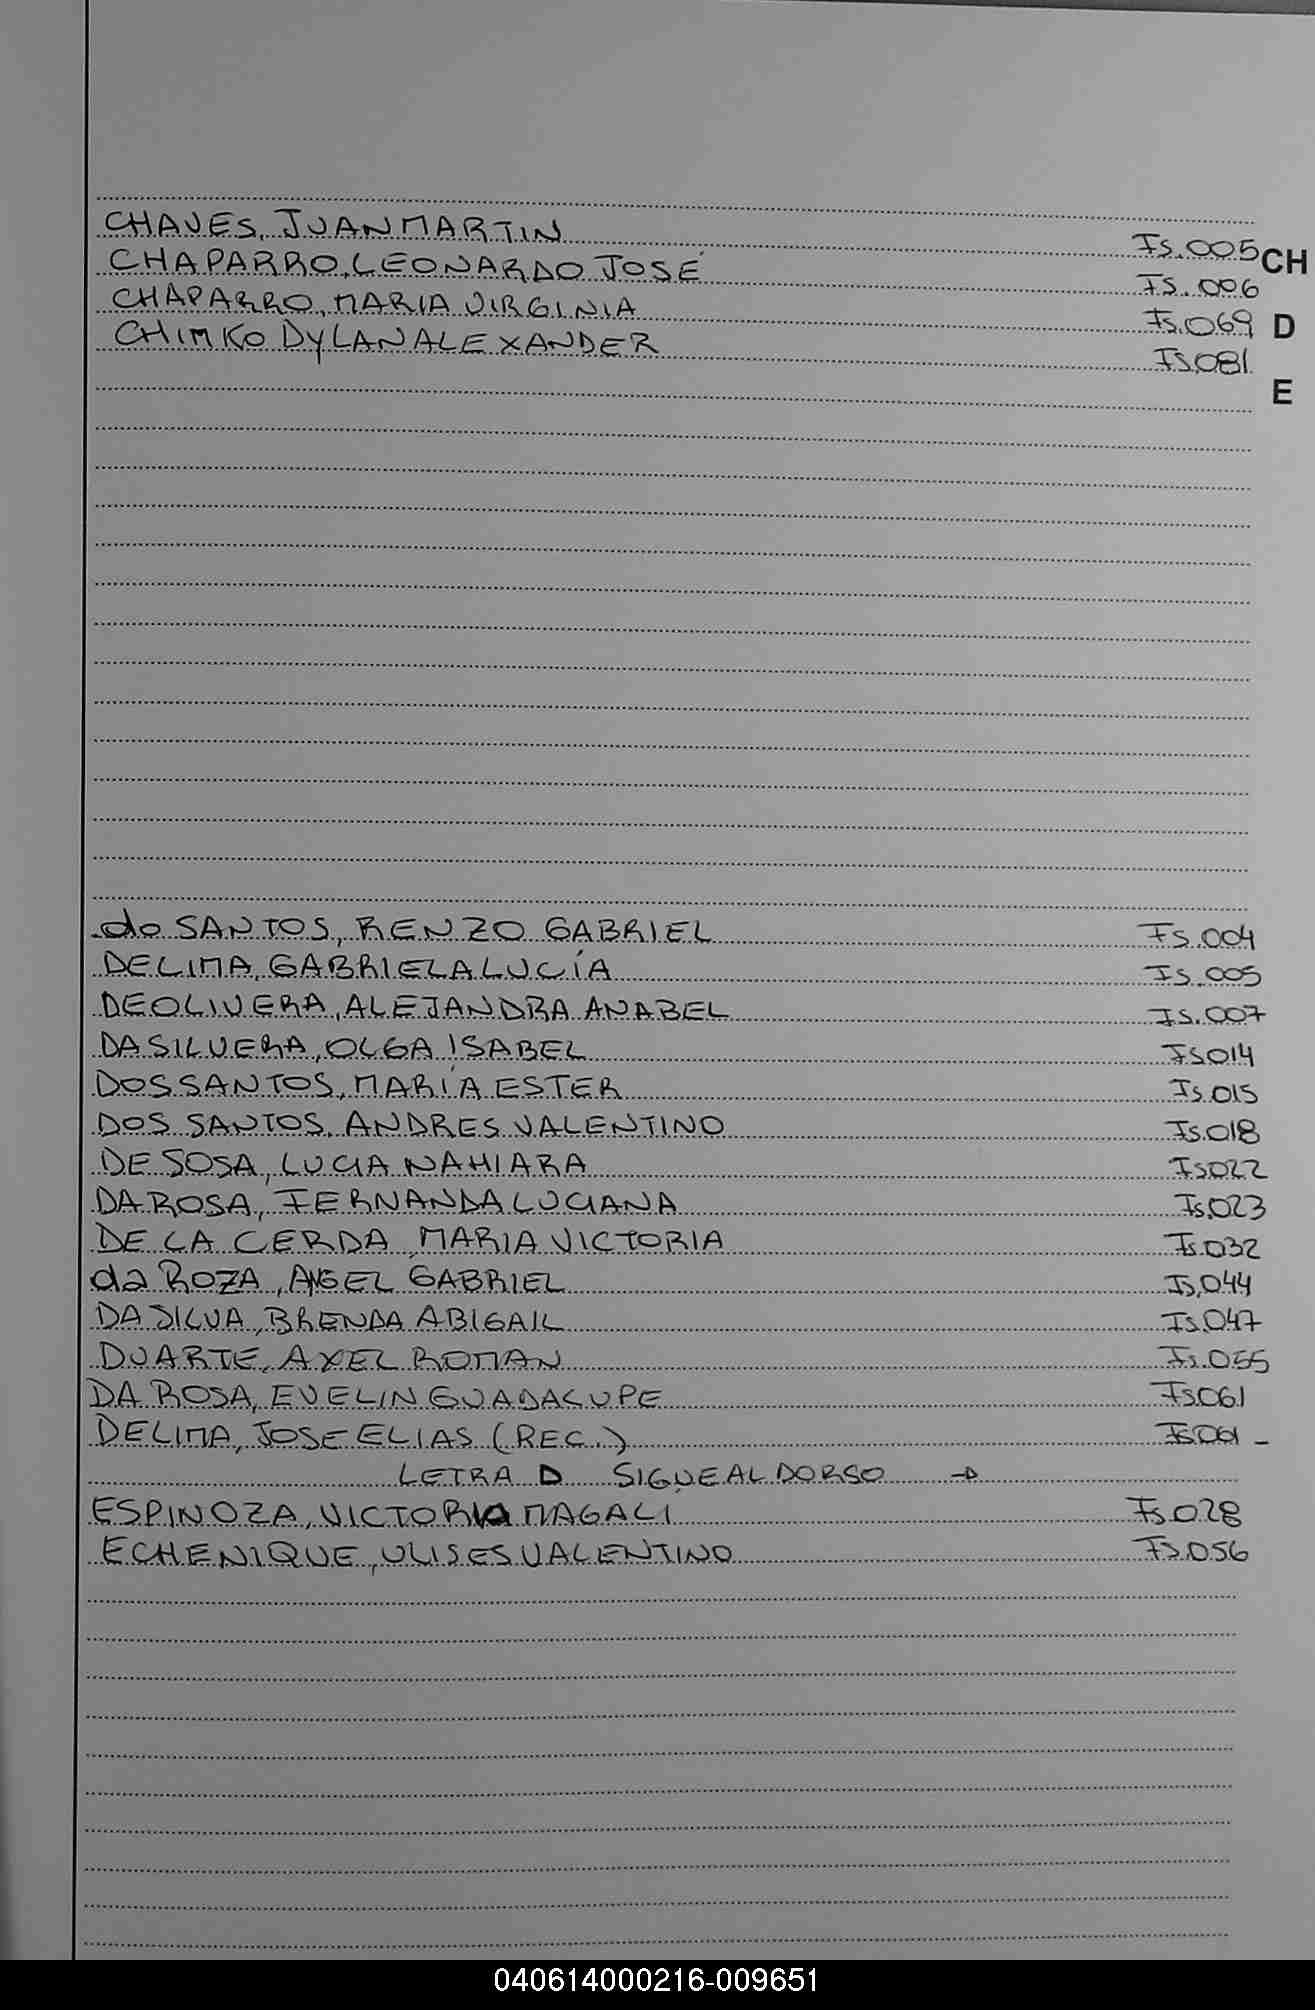 CHAVES, JUAN MARTIN Fs.005 CH
CHAPARRO, LEONARDO JOSÉ Fs.006
CHAPARRO, MARIA VIRGINIA Fs.069 D
CHIMKO DYLAN ALEXANDER Fs.081
E
do SANTOS, RENZO GABRIEL Fs.004
DE LIMA, GABRIELA LUCÍA Fs.005
DE OLIVERA, ALEJANDRA ANABEL Fs.007
DA SILVERA, OLGA ISABEL Fs014
DOS SANTOS, MARÍA ESTER Fs.015
DOS SANTOS, ANDRES VALENTINO Fs.018
DE SOSA, LUCIA NAHIARA Fs022
DA ROSA, FERNANDA LUCIANA Fs.023
DE LA CERDA, MARIA VICTORIA Fs.032
da ROZA, ANGEL GABRIEL Fs.044
DA SILVA, BRENDA ABIGAIL Fs.047
DUARTE, AXEL ROMAN Fs.055
DA ROSA, EVELIN GUADALUPE Fs061
DE LIMA, JOSE ELIAS (REC.) Fs061 -
LETRA D SIGUE AL DORSO →
ESPINOZA, VICTORIA MAGALI Fs028
ECHENIQUE, ULISES VALENTINO Fs.056
040614000216-009651